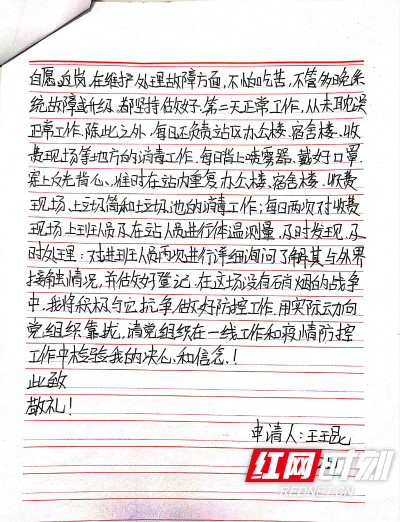 自愿返岗,在维护处理故障方面,不怕吃苦,不管多晚系
统故障或升级,都坚持做好第二天正常工作,从未耽误
正常工作。除此之外,每日还负责站区办公楼、宿舍楼、收
费现场等地方的消毒工作,每日背上喷雾器、戴好口罩、
穿上反光背心,准时在站内重复办公楼、宿舍楼、收费
现场、垃圾筒和垃圾池的消毒工作;每日两次对收费
现场上班人员及在站人员进行体温测量,及时发现,及
时处理;对进班人员再次进行详细询问了解其与外界
接触情况,并做好登记。在这场没有硝烟的战争
中,我将积极与它抗争做好防控工作,用实际动向
党组织靠拢,请党组织在一线工作和疫情防控
工作中检验我的决心和信念!
此致
敬礼!
申请人:王昆
红网时刻
REDNET.CN